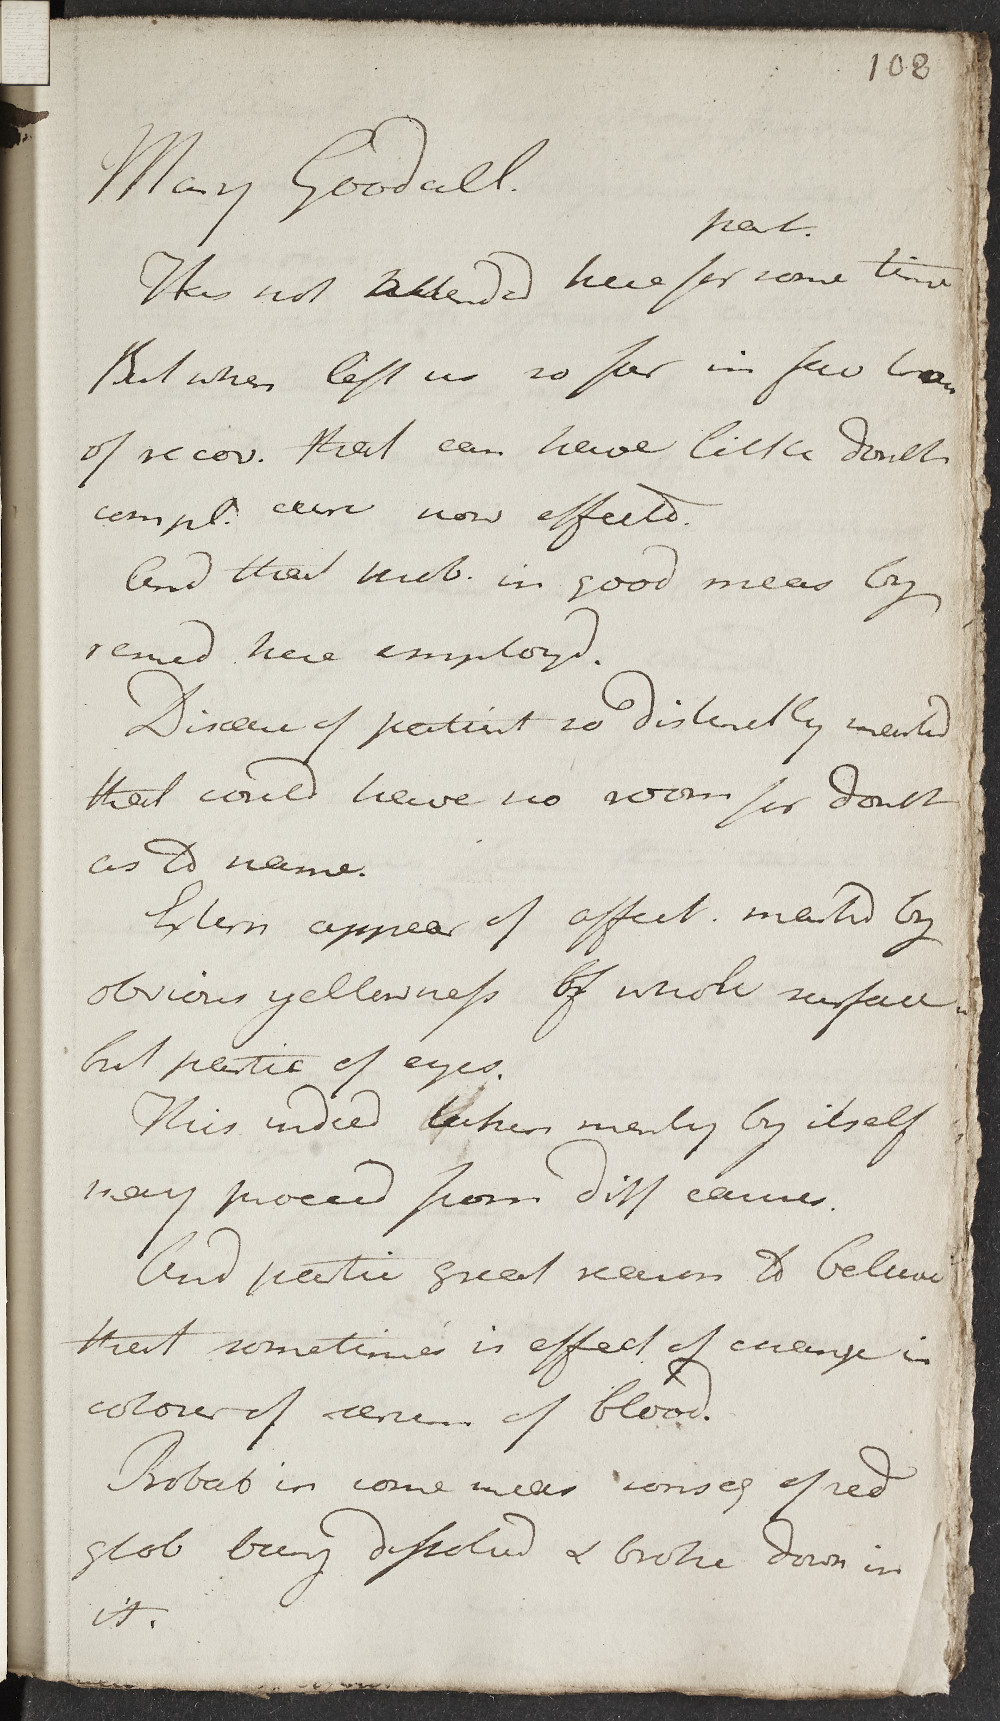 108
Mary Goodall.
past.
Has not attended here for some time
But when left us so far in fair train
of recov. that can have little doubt
compl. cure now effectd.
And that prob. in good meas by
remed here employd.
Disease of patient so distinctly markd
that could have no room for doubt
as to name.
Extern appear of affect. markd by
obvious yellowness of whole surface
but partic of eyes.
This indeed taken merely by itself
may proceed from diff causes.
And partic great reason to believe
that sometimes is effect of change in
colour of serum of blood.
Probab in some meas conseq of red
glob being dissolved & broke down in
it.